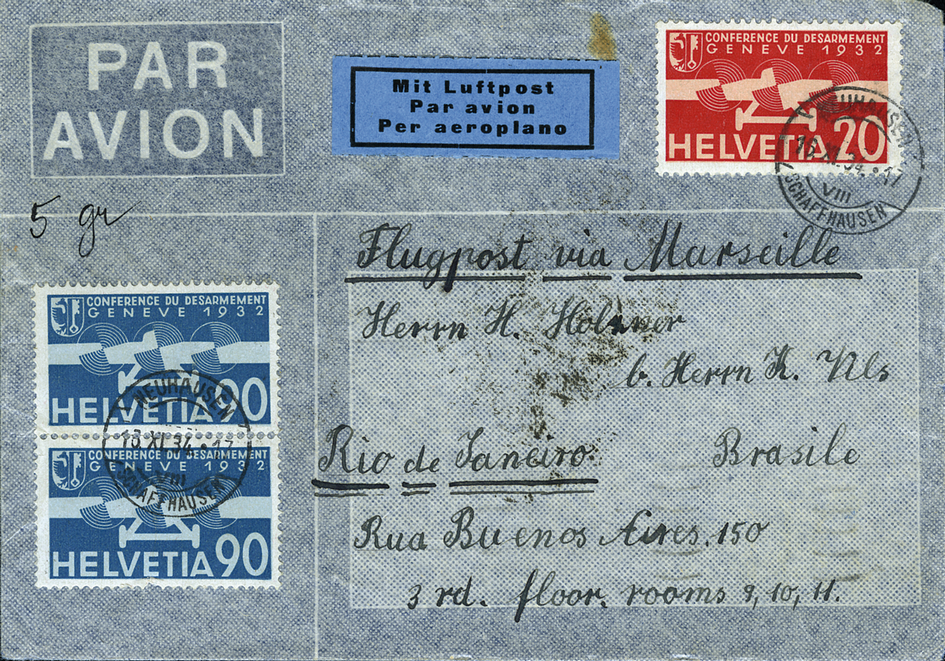 PAR
AVION
Mit Luftpost
Par avion
Per aeroplano
CONFERENCE DU DESARMEMENT
GENEVE 1932
HELVETIA 20
NEUHAUSEN
16.XI.34.•17
VIII
SCHAFFHAUSEN
5 gr
Flugpost via Marseille
Herrn H.
b. Herrn K.
Rio de Janeiro. Brasile
Rua Buenos Aires. 150
3 rd. floor. rooms 9, 10, 11.
CONFERENCE DU DESARMEMENT
GENEVE 1932
HELVETIA 90
NEUHAUSEN
XI.34.•17
VIII
SCHAFFHAUSEN
CONFERENCE DU DESARMEMENT
GENEVE 1932
HELVETIA 90